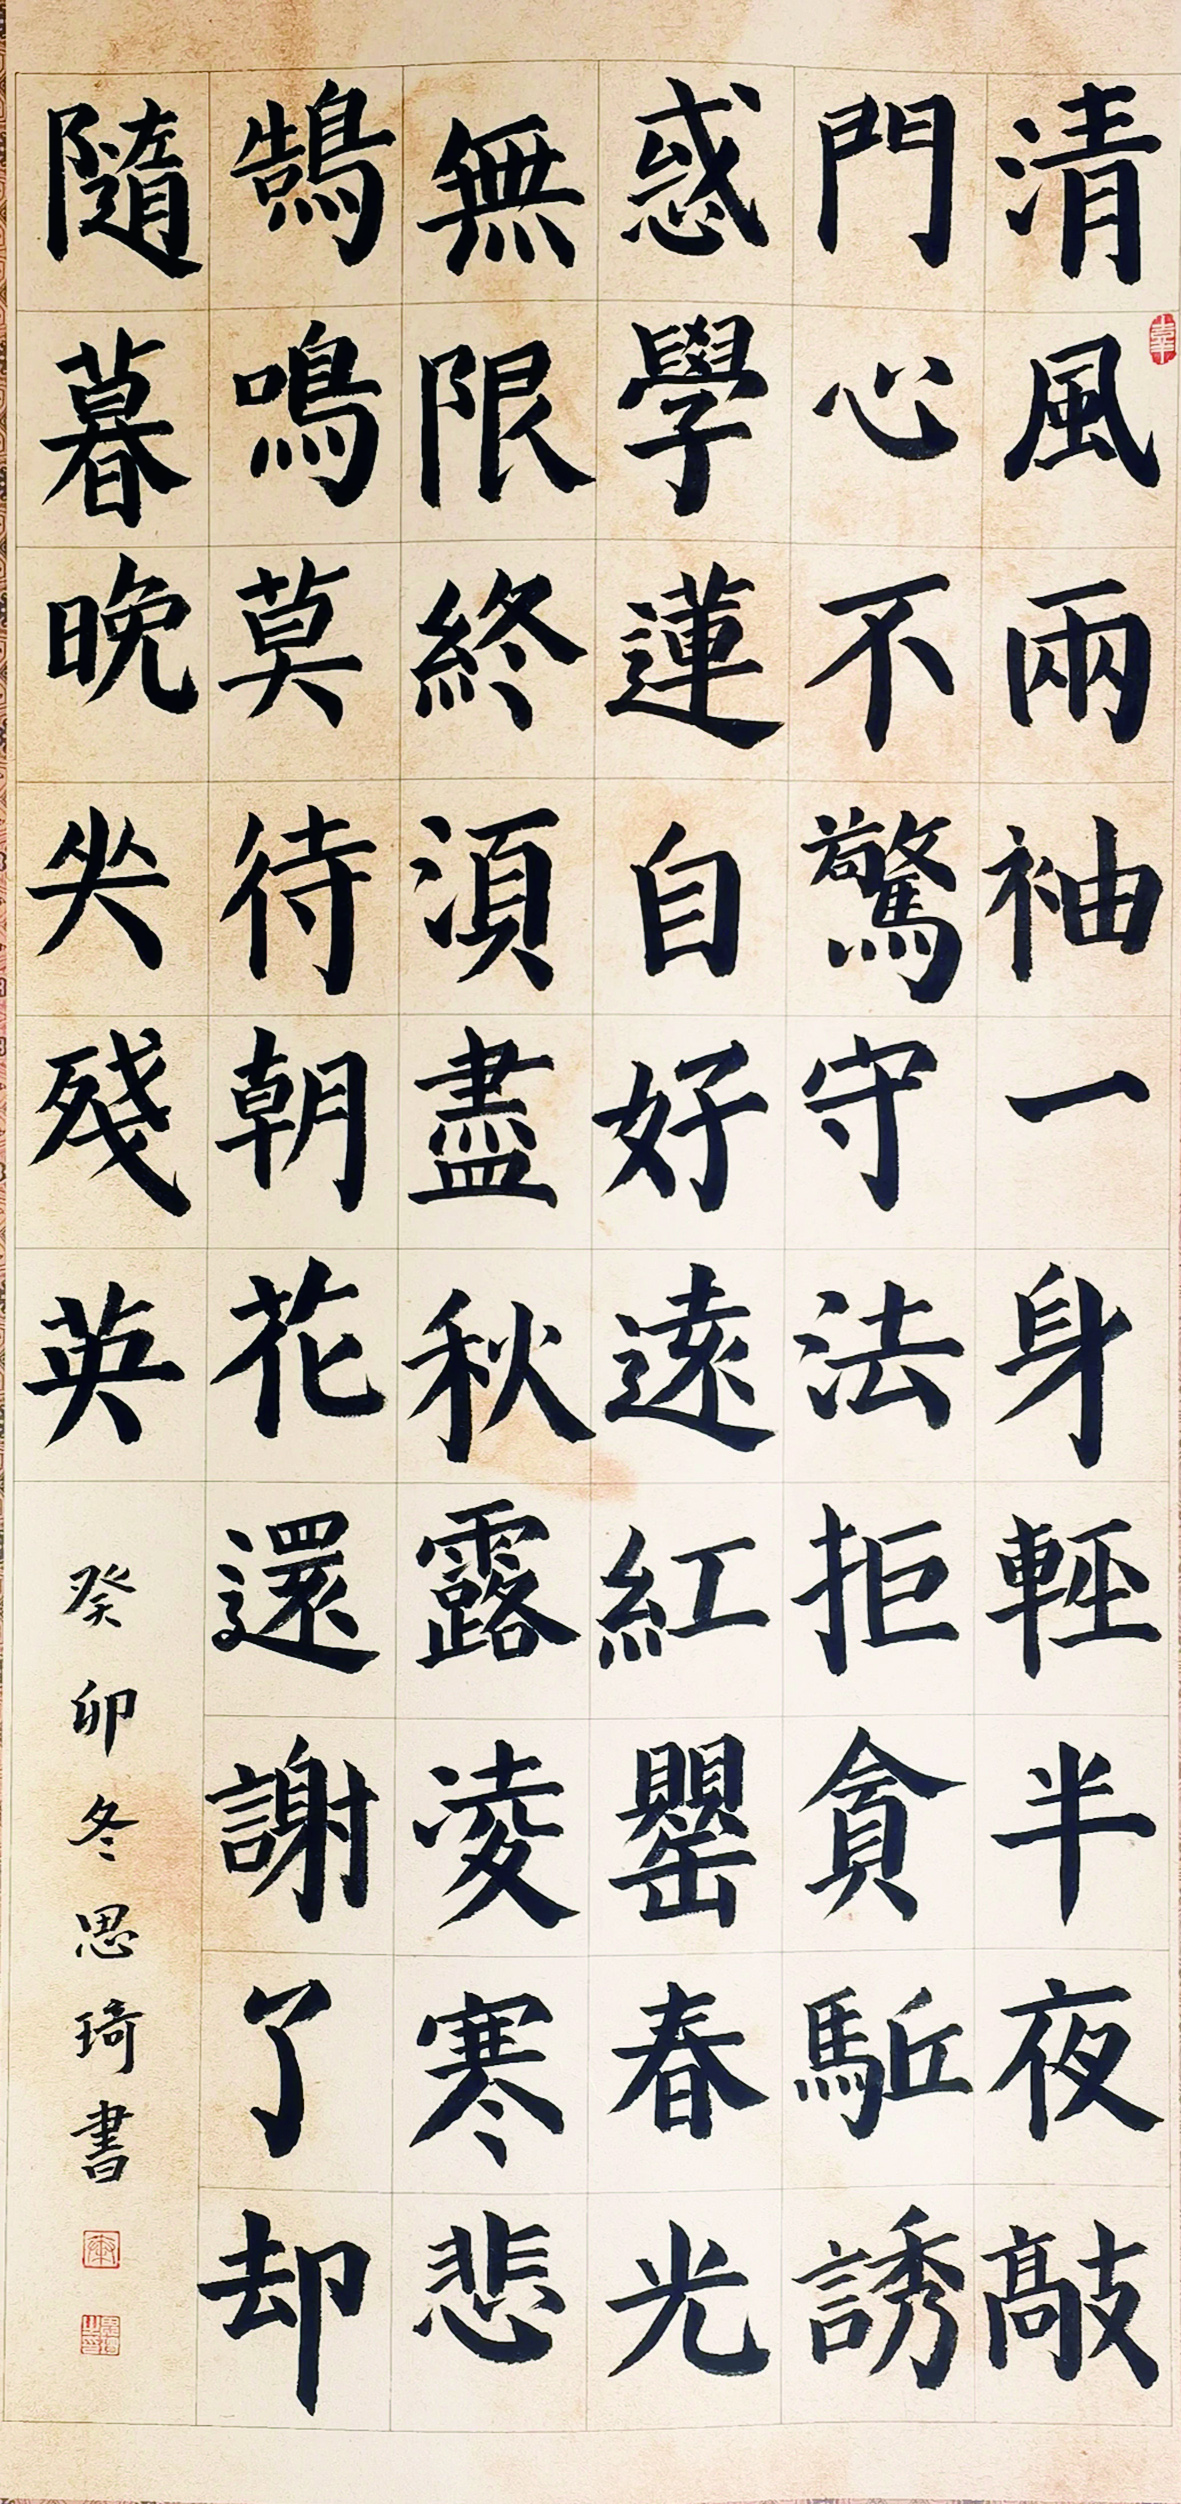 清風兩袖一身輕半夜敲
門心不驚守法拒貪駈誘
惑學蓮自好遠紅罌春光
無限終須盡秋露凌寒悲
鵠鳴莫待朝花還謝了却
隨暮晚㘴殘英
癸卯冬思琦書